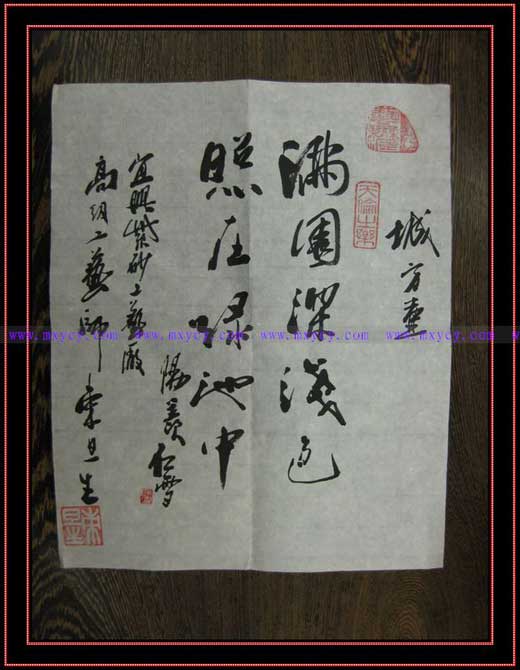 城方壶
满园深浅色
照在绿池中
宜興紫砂工藝廠
高级工藝师 束旦生
天倫之樂
www.mxycy.com www.mxycy.com www.mxycy.com